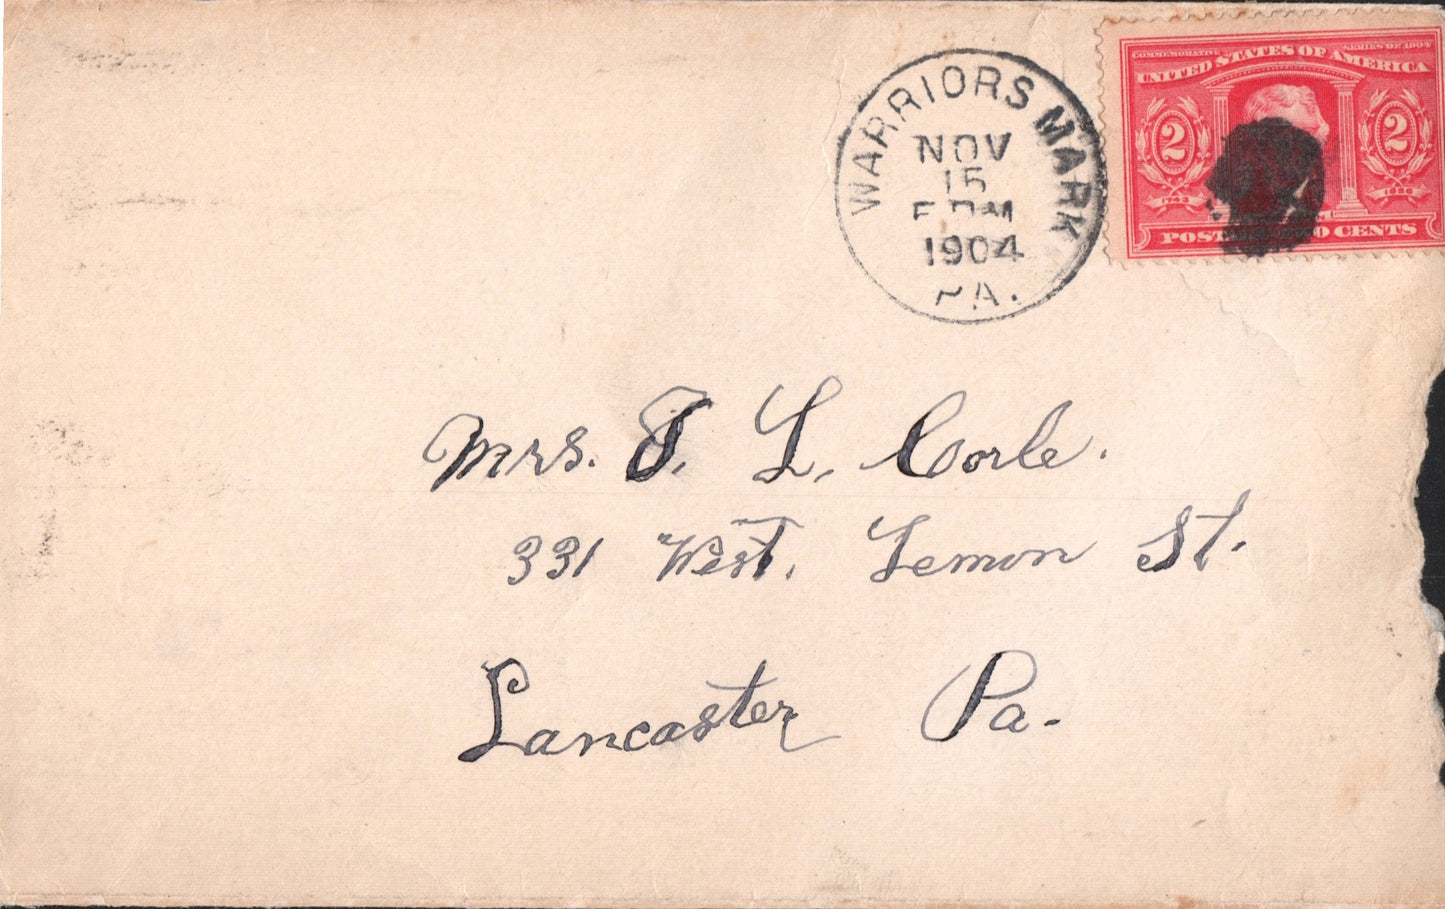 COMMEMORATIVE SERIES OF 1904
UNITED STATES OF AMERICA
2 2
1743 1826
TWO CENTS
WARRIORS MARK
NOV
15
1904
PA.
Mrs. J. L. Corle.
331 West. Lemon St.
Lancaster Pa.